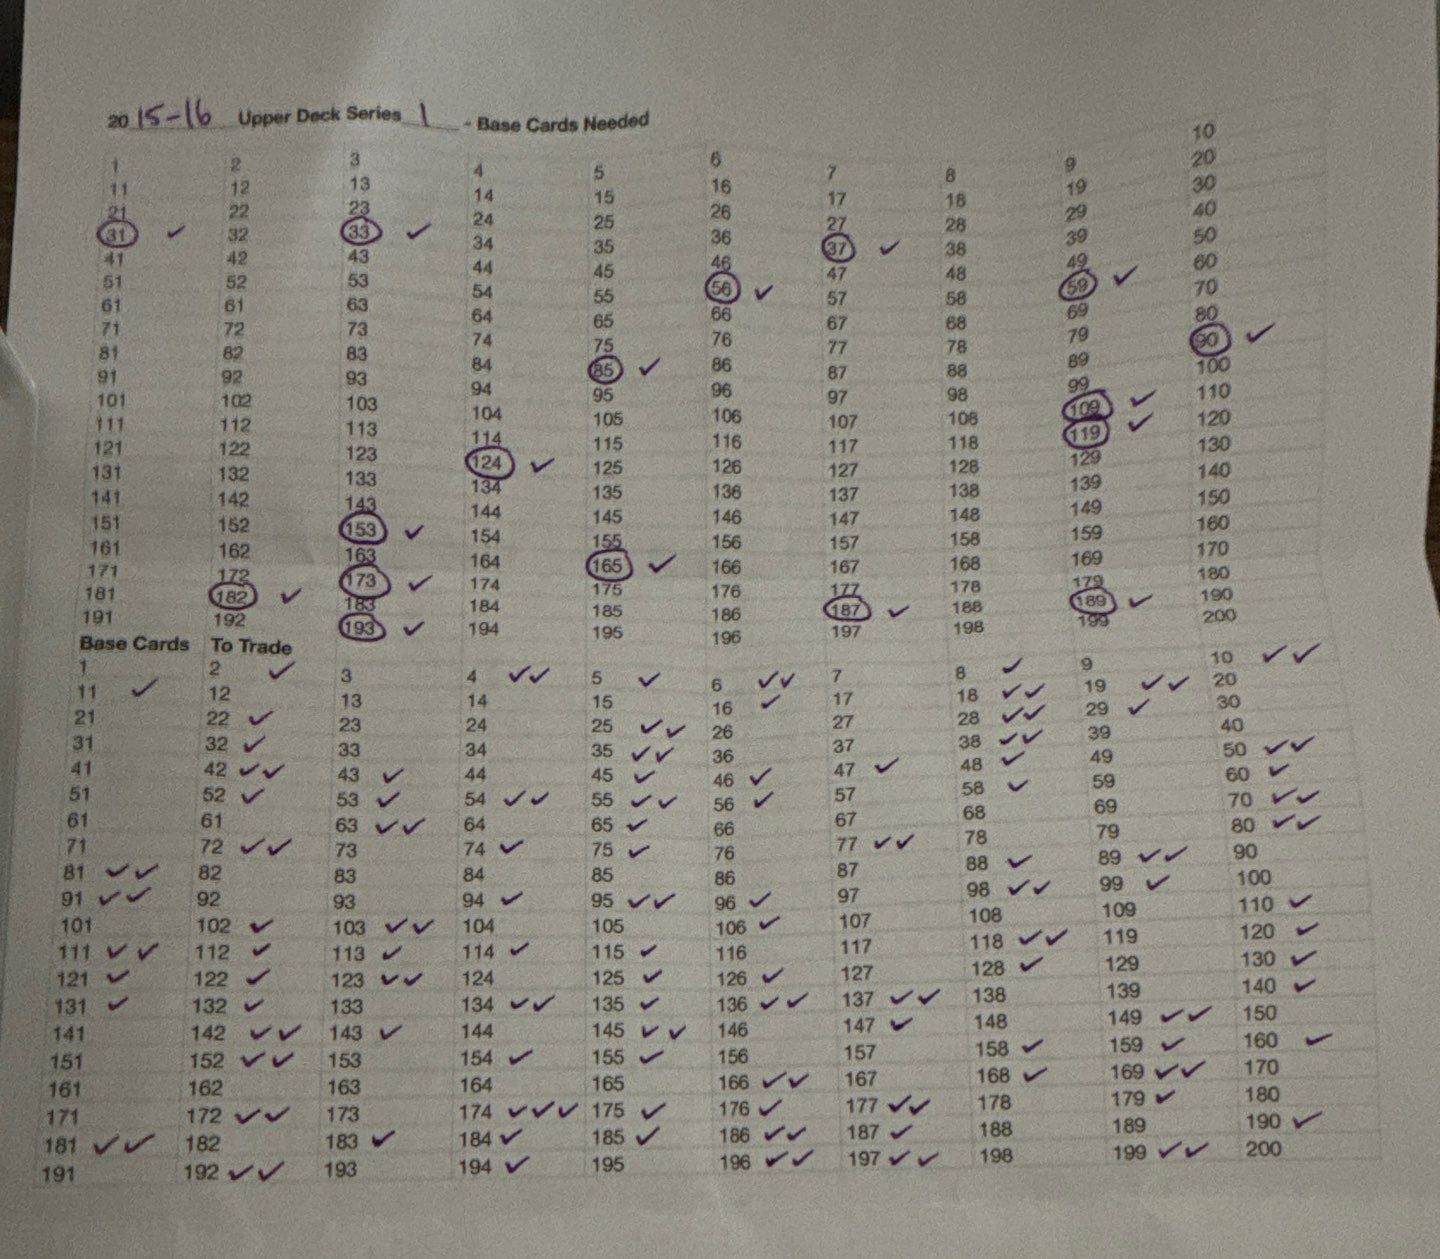 2015-16 Upper Deck Series 1 - Base Cards Needed
1 2 3 4 5 6 7 8 9 10
11 12 13 14 15 16 17 18 19 20
21 22 23 24 25 26 27 28 29 30
31 ✓ 32 33 ✓ 34 35 36 37 ✓ 38 39 40
41 42 43 44 45 46 47 48 49 50
51 52 53 54 55 56 ✓ 57 58 59 ✓ 60
61 61 63 64 65 66 67 68 69 70
71 72 73 74 75 76 77 78 79 80
81 82 83 84 85 ✓ 86 87 88 89 90 ✓
91 92 93 94 95 96 97 98 99 100
101 102 103 104 105 106 107 108 109 ✓ 110
111 112 113 114 115 116 117 118 119 ✓ 120
121 122 123 124 ✓ 125 126 127 128 129 130
131 132 133 134 135 136 137 138 139 140
141 142 143 144 145 146 147 148 149 150
151 152 153 ✓ 154 155 156 157 158 159 160
161 162 163 164 165 ✓ 166 167 168 169 170
171 172 173 ✓ 174 175 176 177 178 179 180
181 182 ✓ 183 184 185 186 187 ✓ 188 189 ✓ 190
191 192 193 ✓ 194 195 196 197 198 199 200
Base Cards To Trade
1 2 ✓ 3 4 ✓✓ 5 ✓ 6 ✓✓ 7 8 ✓ 9 10 ✓✓
11 ✓ 12 13 14 15 16 ✓ 17 18 ✓✓ 19 ✓✓ 20
21 22 ✓ 23 24 25 ✓✓ 26 27 28 ✓✓ 29 ✓ 30
31 32 ✓ 33 34 35 ✓✓ 36 37 38 ✓✓ 39 40
41 42 ✓✓ 43 ✓ 44 45 ✓ 46 ✓ 47 ✓ 48 ✓ 49 50 ✓✓
51 52 ✓ 53 ✓ 54 ✓✓ 55 ✓✓ 56 ✓ 57 58 ✓ 59 60 ✓
61 61 63 ✓✓ 64 65 ✓ 66 67 68 69 70 ✓✓
71 72 ✓✓ 73 74 ✓ 75 ✓ 76 77 ✓✓ 78 79 80 ✓✓
81 ✓✓ 82 83 84 85 86 87 88 ✓ 89 ✓✓ 90
91 ✓✓ 92 93 94 ✓ 95 ✓✓ 96 ✓ 97 98 ✓✓ 99 ✓ 100
101 102 ✓ 103 ✓✓ 104 105 106 ✓ 107 108 109 110 ✓
111 ✓✓ 112 ✓ 113 ✓ 114 ✓ 115 ✓ 116 117 118 ✓✓ 119 120 ✓
121 ✓ 122 ✓ 123 ✓✓ 124 125 ✓ 126 ✓ 127 128 ✓ 129 130 ✓
131 ✓ 132 ✓ 133 134 ✓✓ 135 ✓ 136 ✓✓ 137 ✓✓ 138 139 140 ✓
141 142 ✓✓ 143 ✓ 144 145 ✓✓ 146 147 ✓ 148 149 ✓✓ 150
151 152 ✓✓ 153 154 ✓ 155 ✓ 156 157 158 ✓ 159 ✓ 160 ✓
161 162 163 164 165 166 ✓✓ 167 168 ✓ 169 ✓✓ 170
171 172 ✓✓ 173 174 ✓✓✓ 175 ✓ 176 ✓ 177 ✓✓ 178 179 ✓ 180
181 ✓✓ 182 183 ✓ 184 ✓ 185 ✓ 186 ✓✓ 187 ✓ 188 189 190 ✓
191 192 ✓✓ 193 194 ✓ 195 196 ✓✓ 197 ✓✓ 198 199 ✓✓ 200